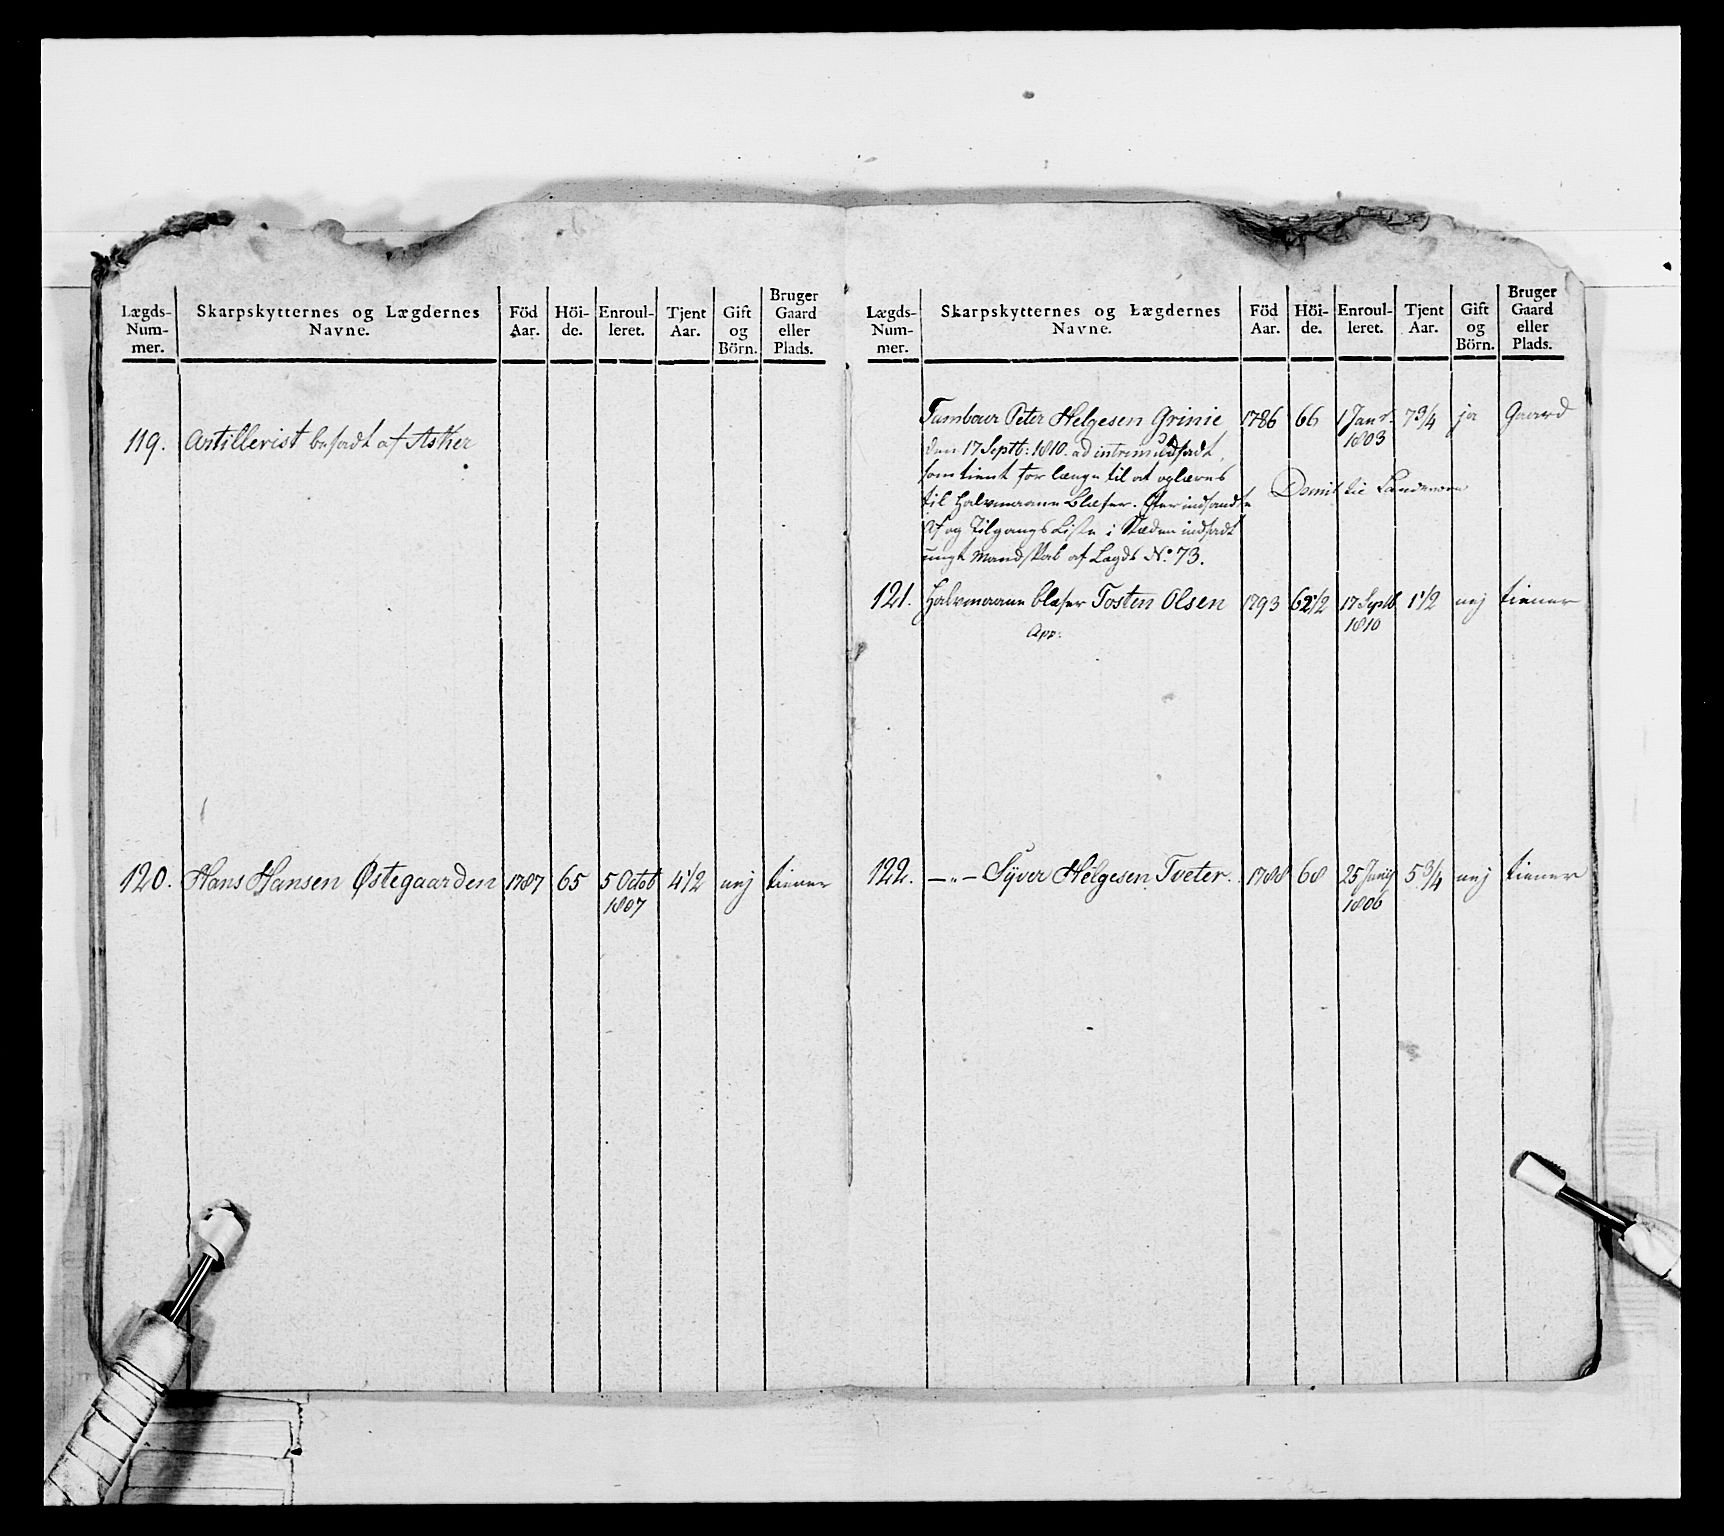 Lægds-Num-mer. Skarpskytternes og Lægdernes Navne. Föd Aar. Höi-de. Enroul-leret. Tjent Aar. Gift og Börn. Bruger Gaard eller Plads.
119. Artillerist besadt af Asker
120. Hans Hansen Østegaarden 1787 65 5 Octob 1807 4 1/2 nej tiener
Lægds-Num-mer. Skarpskytternes og Lægdernes Navne. Föd Aar. Höi-de. Enroul-leret. Tjent Aar. Gift og Börn. Bruger Gaard eller Plads.
Tambour Peter Helgesen Grinie 1786 66 1 Jan r. 1803 7 3/4 ja Gaard
den 17 Septb: 1810. ad intrim udsadt,
som tient for længe til at oplæres
til Halvmaane blæser. Efter indsendte
Af og Tilgangs Liste i Stæden indsadt
ungt Mandskab af Lægds No. 73.
Demit til Landeværn
121. Halvmaane blæser Tosten Olsen 1793 62 1/2 17 Septb 1810 1 1/2 nej tiener
122. — " — Syver Helgesen Tveter. 1788 68 25 Junij 1806 5 3/4 nej tiener